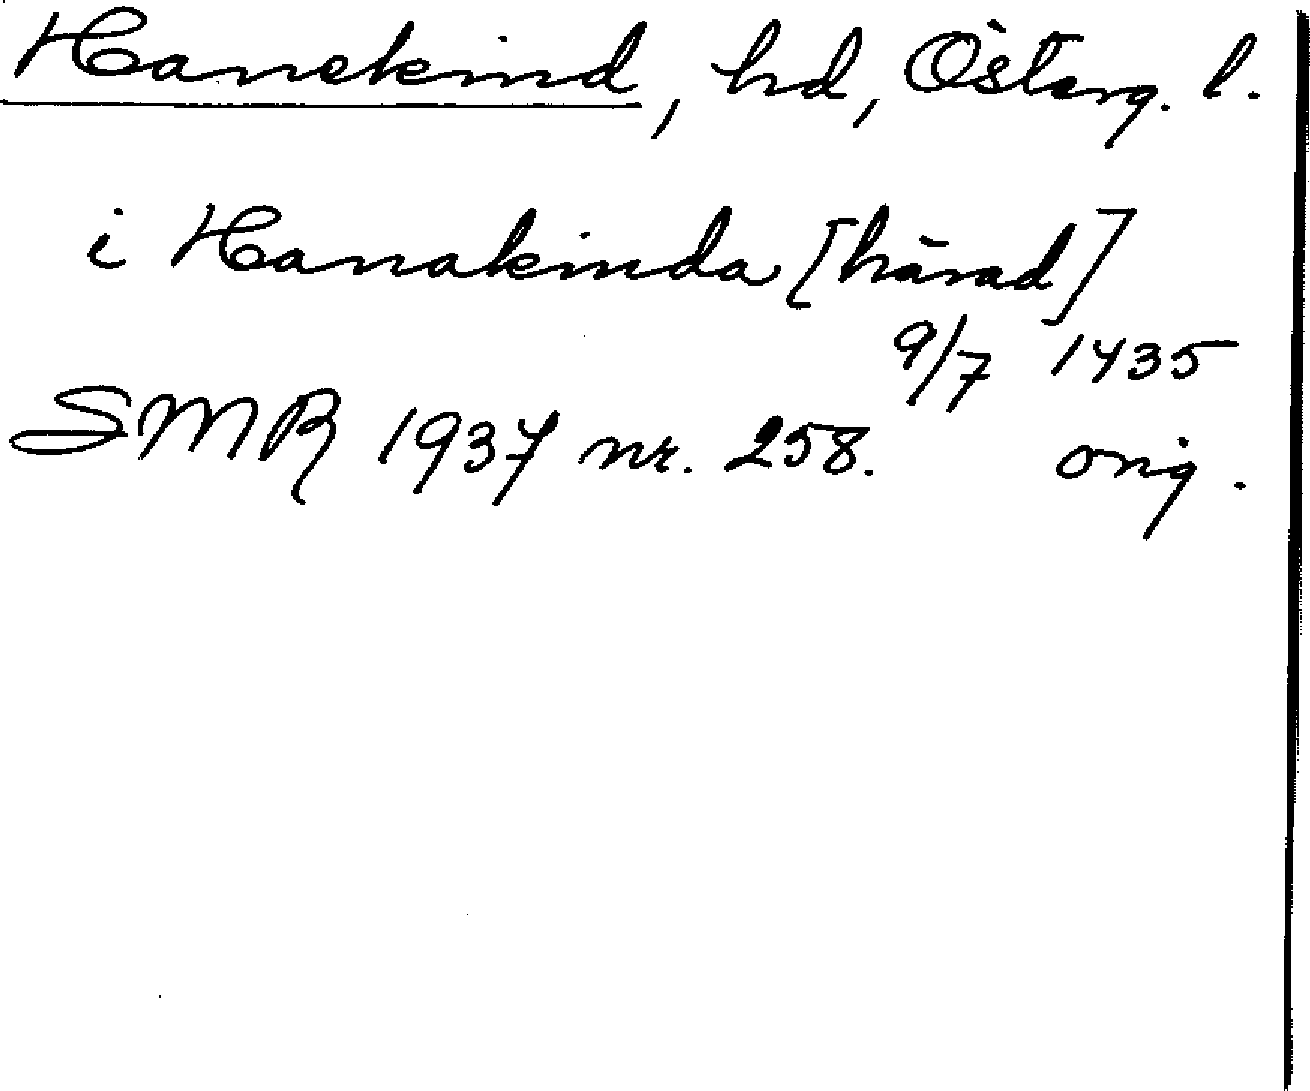 Hanekind, hd, Österg. l.
i Hanakinda [härad]
9/7 1435
SMR 1937 nr. 258. orig.